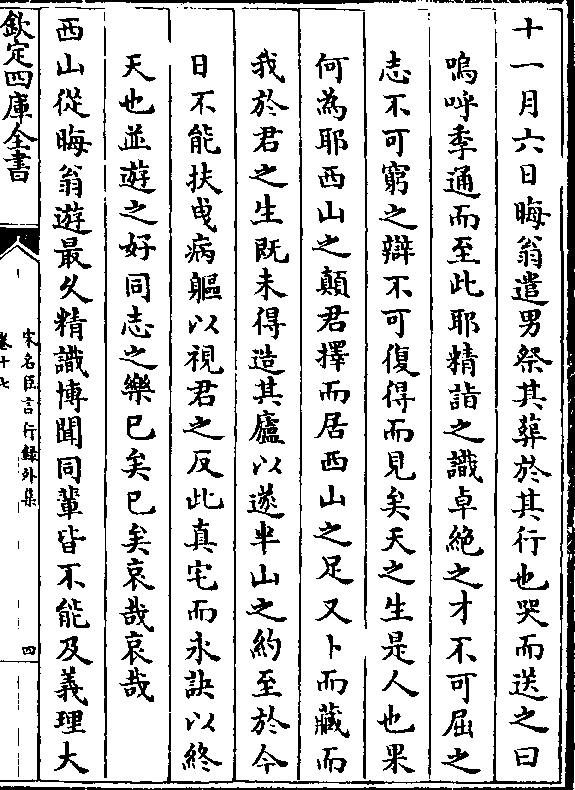 十一月六日晦翁遣男祭其葬於其行也哭而送之曰
嗚呼季通而至此耶精詣之識卓絶之才不可屈之
志不可窮之辯不可復得而見矣天之生是人也果
何為耶西山之顛君擇而居西山之足又卜而藏而
我於君之生既未得造其廬以遂半山之約至於今
日不能扶曳病軀以視君之反此真宅而永訣以終
天也並遊之好同志之樂已矣已矣哀哉哀哉
西山從晦翁遊最乆精識博聞同輩皆不能及義理大
欽定四庫全書
宋名臣言行録外集
卷十七
四